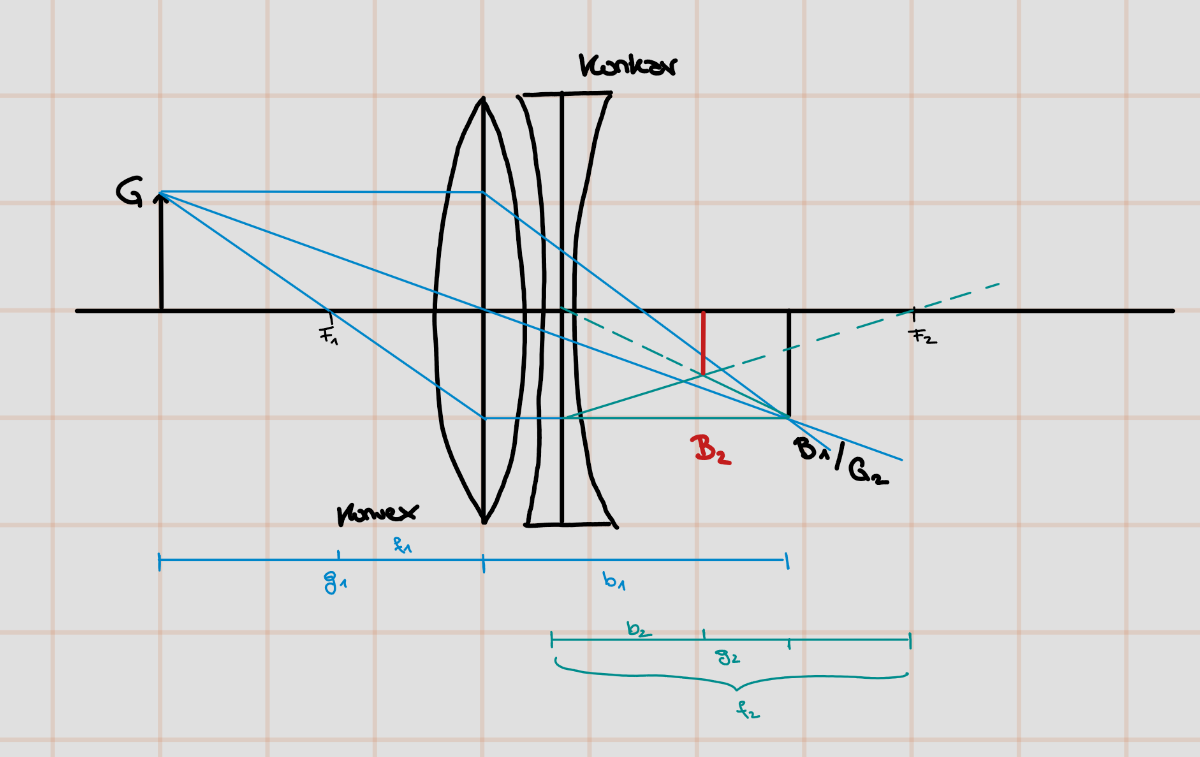 Konkav
G
F₁
F₂
B₂
B₁/G₂
Konvex
f₁
g₁
b₁
b₂
g₂
f₂